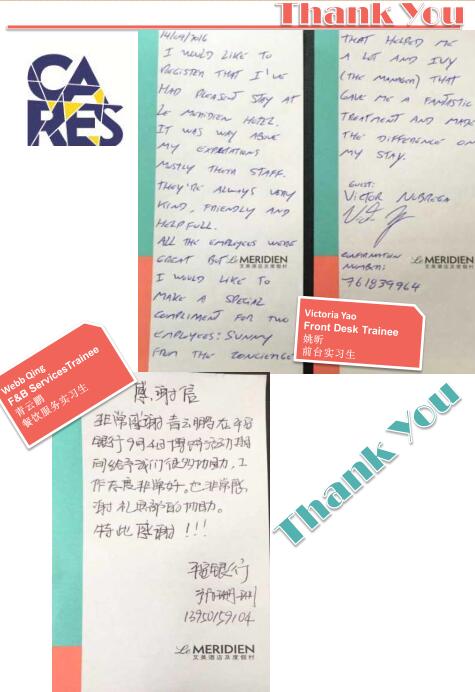 Thank You
CARES
14/09/2016
I WOULD LIKE TO
REGISTER THAT I'VE
HAD PLEASENT STAY AT
LE MERIDIEN HOTEL.
IT WAS WAY ABOVE
MY EXPECTATIONS
MOSTLY THEIR STAFF.
THEY'RE ALWAYS VERY
KIND, FRIENDLY AND
HELPFULL.
ALL THE EMPLOYEES WERE
GREAT BUT
I WOULD LIKE TO
MAKE A SPECIAL
COMPLIMENT FOR TWO
EMPLOYEES: SUNNY
FROM THE CONCIERGE
Le MERIDIEN
艾美酒店及度假村
THAT HELPED ME
A LOT AND IVY
(THE MANAGER) THAT
GAVE ME A FANTASTIC
TREATMENT AND MADE
THE DIFFERENCE ON
MY STAY.
GUEST:
VICTOR NOBREGA
CONFIRMATION
NUMBER:
761839964
Le MERIDIEN
艾美酒店及度假村
Victoria Yao
Front Desk Trainee
姚昕
前台实习生
Webb Qing
F&B ServicesTrainee
青云鹏
餐饮服务实习生
感谢信
非常感谢青云鹏在平安
银行9月4日博饼活动期
间给予我们很多协助,工
作态度非常好。也非常感
谢礼宾部的协助。
特此感谢!!!
平安银行
13950159104
Le MERIDIEN
艾美酒店及度假村
Thank You